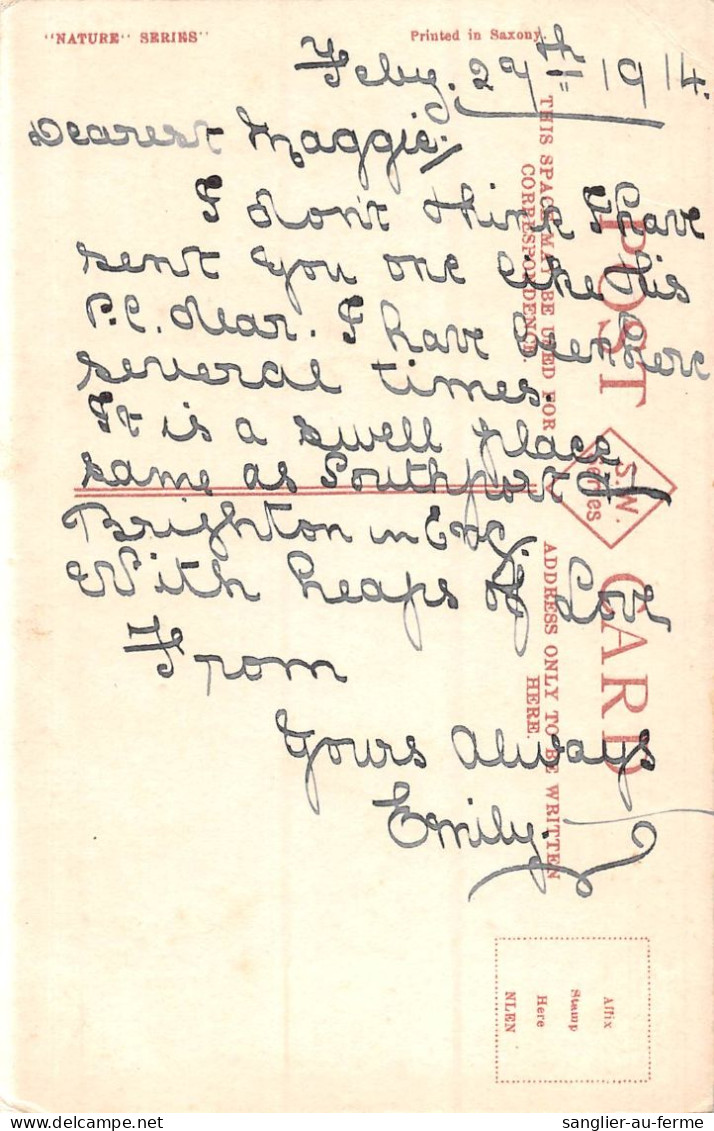 "NATURE" SERIES"
Printed in Saxony.
Feby. 29th 1914.
Dearest Maggie;
I don't think I have
sent you one like this
P.C. dear. I have been here
several times.
It is a swell place,
same as Southport &
Brighton in Eng.
With heaps of Love
From
Yours Always
Emily.
THIS SPACE MAY BE USED FOR
CORRESPONDENCE.
POST CARD
S.W.
Series
ADDRESS ONLY TO BE WRITTEN
HERE.
Affix
Stamp
Here
NLEN
sanglier-au-ferme